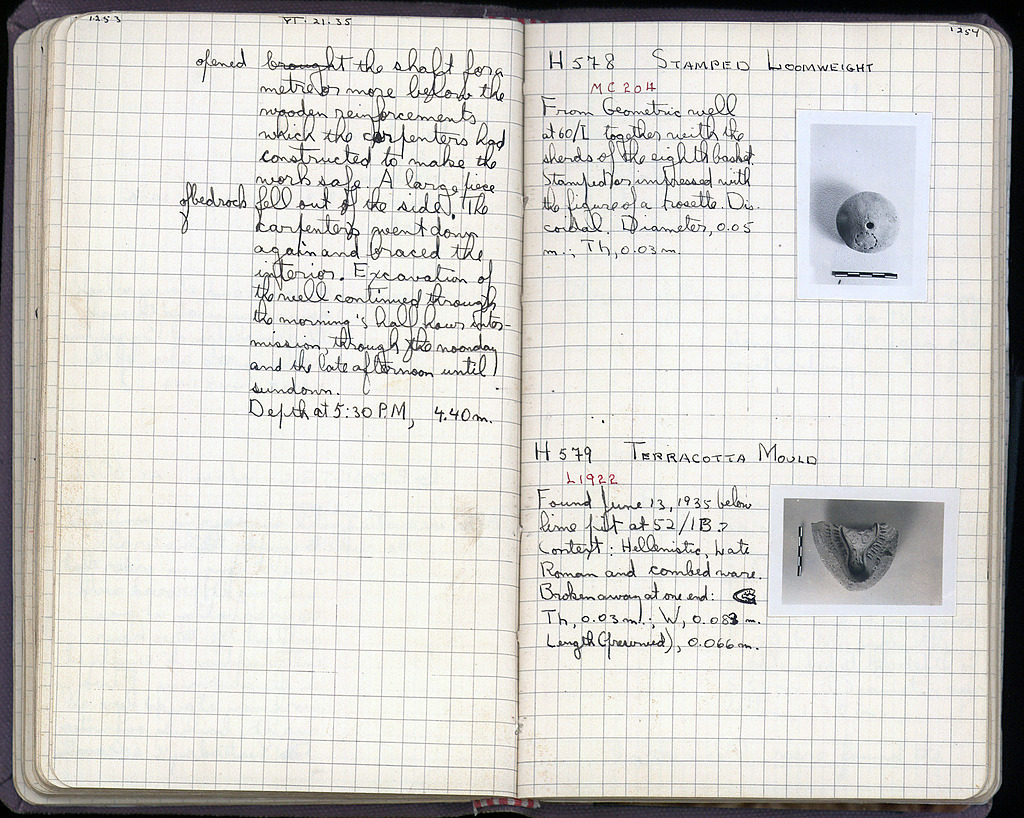 1253
VI. 21. 35
opened brought the shaft for a
metre or more below the
wooden reinforcements
which the carpenters had
constructed to make the
work safe. A large piece
of bedrock fell out of the side. The
carpenters went down
again and braced the
interior. Excavation of
the well continued through
the morning's half hour inter-
mission, through the noonday
and the late afternoon until
sundown.
Depth at 5:30 P.M, 4.40 m.
1254
H 578 STAMPED LOOMWEIGHT
MC 204
From Geometric well
at 60/I together with the
sherds of the eighth basket.
Stamped or impressed with
the figure of a rosette. Dis-
coidal. Diameter, 0.05
m.; Th, 0.03 m.
H 579 TERRACOTTA MOULD
L1922
Found June 13, 1935 below
lime pit at 52/IB.?
Context: Hellenistic, Late
Roman and combed ware.
Broken away at one end:
Th, 0.03 m.; W, 0.083 m.
Length (preserved), 0.066 m.